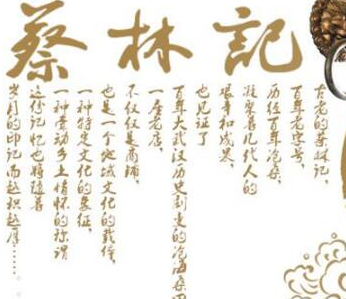 蔡林記
古老的蔡林记，
百年老字号，
历经百年沧桑，
凝聚着几代人的
艰辛和成果，
也见证了
百年大武汉历史剧变的沧海桑田
一座老店，
不仅仅是商铺，
也是一个地域文化的载体，
一种特定文化的象征，
一种牵动乡土情怀的称谓
这份记忆也将随着
岁月的印记而越积越厚……